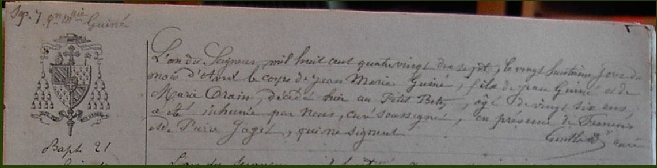 Sep. 7 Jn Mie Guiné
L'an du Seigneur, mil huit cent quatre vingt dix sept, le vingt huitième jour du
mois d'Avril le corps de Jean Marie Guiné, fils de Jean Guiné et de
Marie Orain, décédé hier au Petit Betz, agé de vingt six ans
a été inhumé par nous, curé soussigné, en présence de François
et de Pierre Jaget, qui ne signent
curé
Bapt. 21
L'an du Seigneur